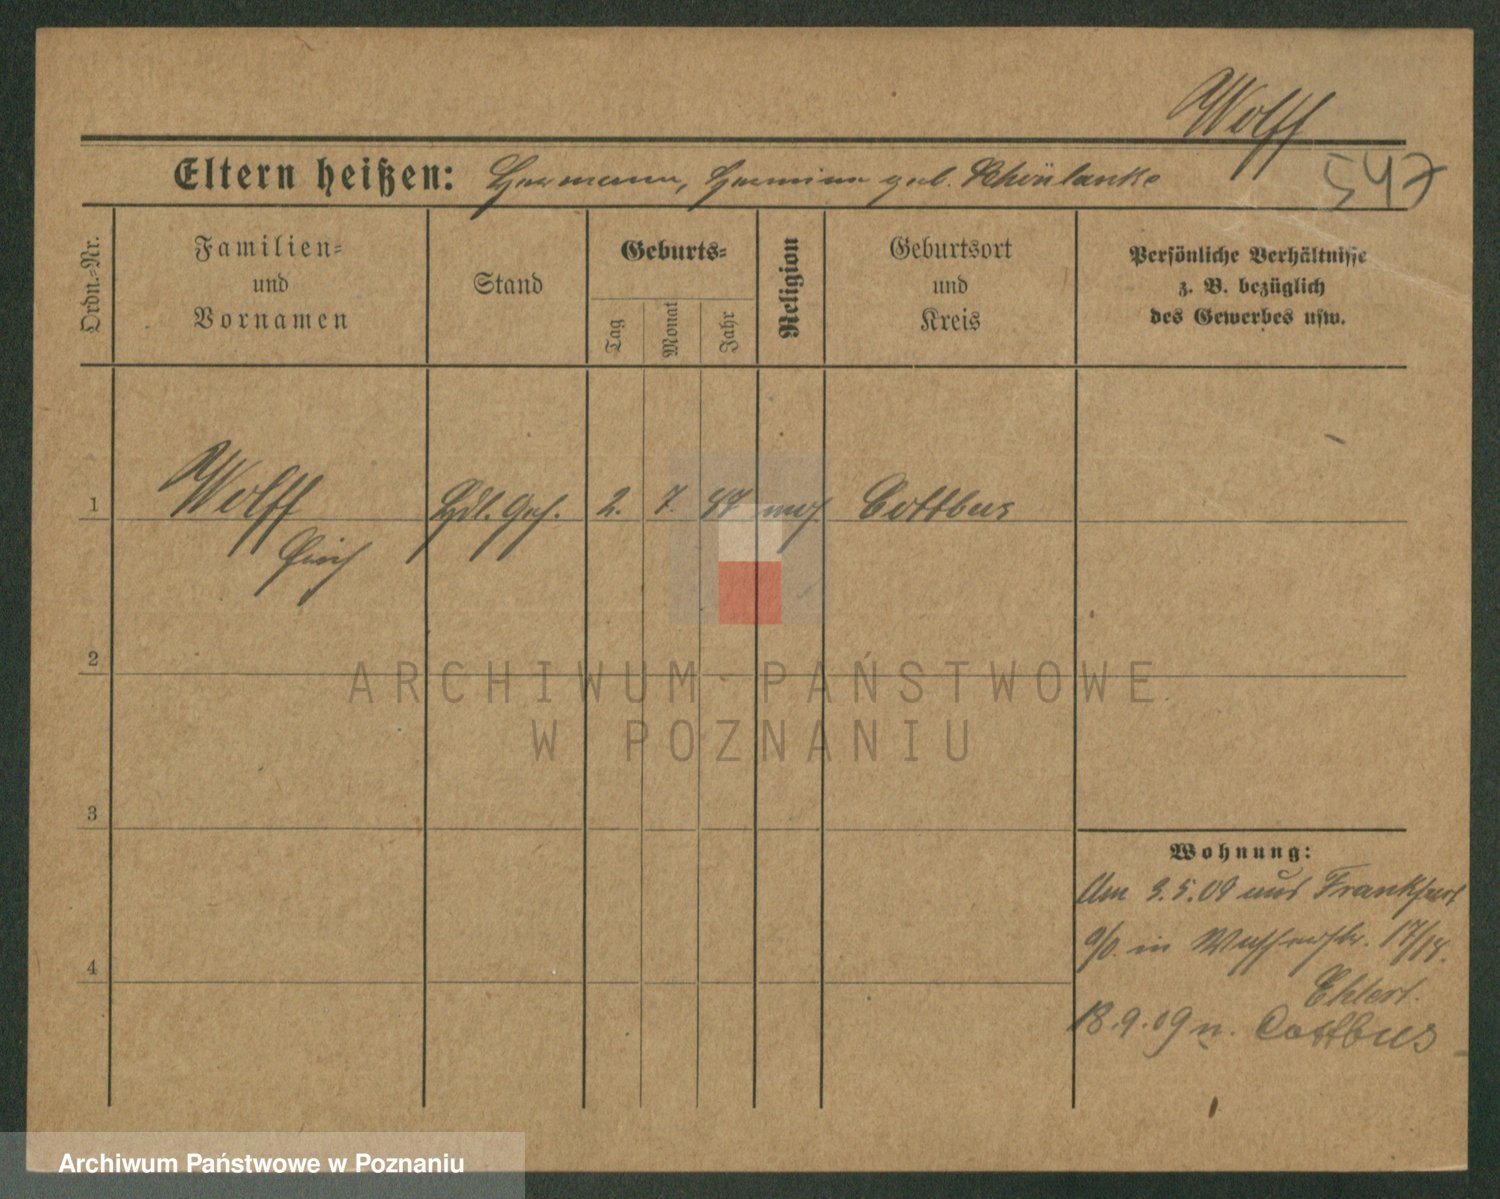 Wolff
547
Eltern heißen: Hermann, Hermine geb. Schönlanke
Ordn.=Nr.
Familien=
und
Vornamen
Stand
Geburts=
Tag
Monat
Jahr
Religion
Geburtsort
und
Kreis
Persönliche Verhältnisse
z. B. bezüglich
des Gewerbes usw.
1
Wolff
Hdl. Geh. 2. 7. mos. Cottbus
2
3
4
Wohnung:
Am 3.5.09 aus Frankfurt
a/O. in Wasserstr. 17/18.
Ehlert.
18.9.09 n. Cottbus
ARCHIWUM PAŃSTWOWE
W POZNANIU
Archiwum Państwowe w Poznaniu